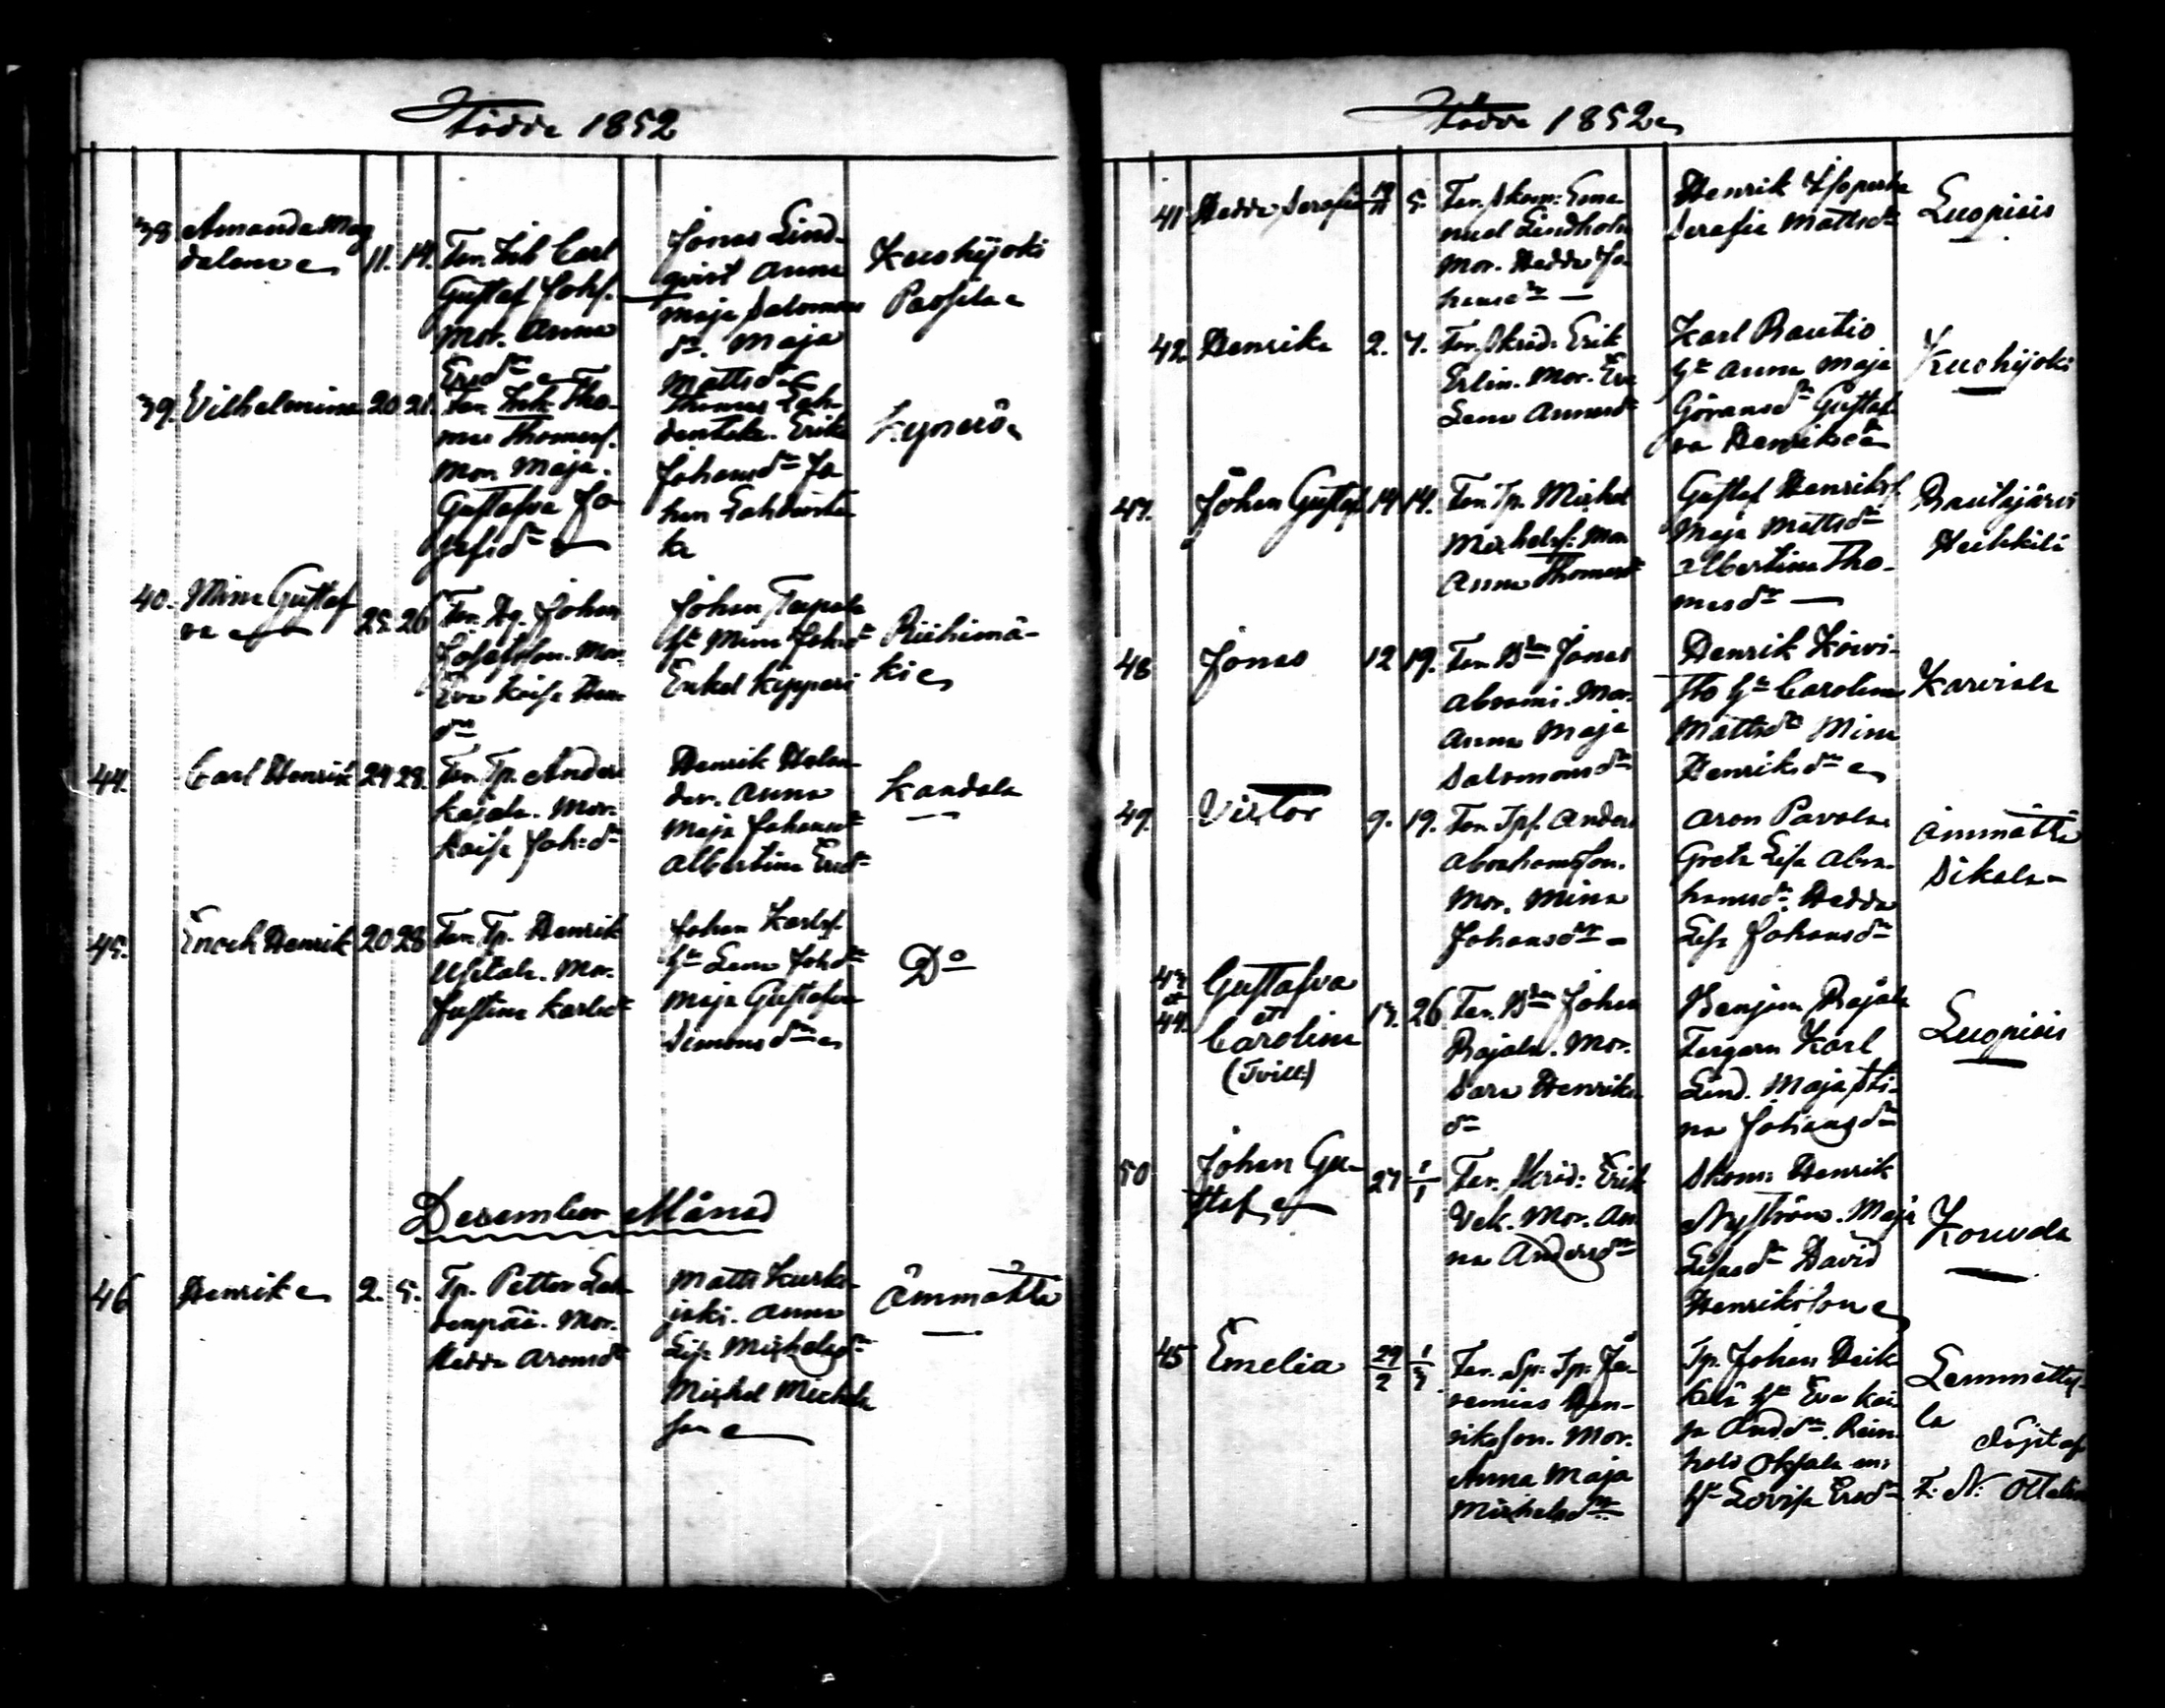 Födde 1852
38 Amanda Mag
dalena 11. 14.
Fan. Inh Carl
Gustaf Johs.
Mor. Anna
Ersdr
Jonas Lind-
qvist Anna
Maja Salomons
dr. Maja
Mattsdr
Kuohijoki
Passila
39. Vilhelmina 20 21.
Fan. Inh. Tho-
mas Thomess.
Mor. Maja
Gustafva Jo
sefsdr
Thomas Lah
dentaka. Erika
Johansdr Jo
han Lahdenta
ka
Kyynärö
40. Mina Gustaf
va 25. 26
Fan. Dg. Johan
Josefsson. Mor
Eva Kaisa Hen
dr
Johan Teepala
h. Mina Johsdr
Enkel Kippari
Riihimä-
ki
44. Carl Henrik 24 28.
Fan. Tp. Anders
Kajala. Mor.
Kaisa Joh:dr
Henrik Helan
der. Anna
Maja Johansdr
Albertina Ersdr
Kandala
45. Enoch Henrik 20 28
Fan. Tp. Henrik
Mor.
Justina Karlsdr
Johan Karlss.
h. Lena Johsdr
Maja Gustafva
Simonsdr
Do
December Månad
46 Henrik 2. 5.
Tp. Petter Leh
tenpää. Mor.
Hedda Aronsdr
Matts Kurki-
järki. Anna
Lisa Michelsdr
Michel Michels
son
Ämmättä
Födde 1852
41 Hedda Serafia 19/11 5.
Fan. Skom: Ema-
nuel Lindholm
Mor. Hedda Jo
hansdr
Henrik
Serafia Mattsdr
Luopiois
42. Henrik 2. 7.
Fan. Skräd: Erik
Erlin. Mor. Eva
Lena Annasdr
Karl Rautio
h. Anna Maja
Göransdr Gustaf
va Henriksdr
Kuohijoki
47. Johan Gustaf 14 14.
Fan. Tp. Michel
Michelss: Mor
Anna Thomasdr
Gustaf Henrikss.
Maja Mattsdr
Albertina Tho-
masdr
Rautajärvi
Heikkilä
48 Jonas 12 19.
Fan. Bdn Jonas
Abrami. Mor.
Anna Maja
Salomonsdr
Henrik Koivi-
sto h. Carolina
Mattsdr Mina
Henriksdr
Karviala
49. Victor 9. 19.
Fan. Tpf. Anders
Abrahamsson.
Mor. Mina
Johansdr
Aron Pavola
Greta Lisa Abra-
hamsdr. Hedda
Lisa Johansdr
Ämmättä
Sikala
43
et
44. Gustafva
et
Carolina
(Tvill:) 13. 26
Fan. Bdn Johan
Rajala. Mor.
Sara Henriks
dr
Benjam Rajala
Fargarn Karl
Lind. Maja Sti-
na Johansdr
Luopiois
50 Johan Gu-
staf 27 1/1
Fan. Skräd: Erik
Vek. Mor. An
na Andersdr
Skom: Henrik
Nyström. Maja
Lisasdr David
Henriksson
Kouvola
45 Emelia 29/2 1/3
Fan. Sp: Tp: Je-
remias Hen-
riksson. Mor.
Anna Maja
Michelsdr
Tp. Johan Heik
kilä h. Eva Kai
sa Andsdr. Rein
hold Ohjala
h. Lovisa Ersdr
Lemmätty-
lä